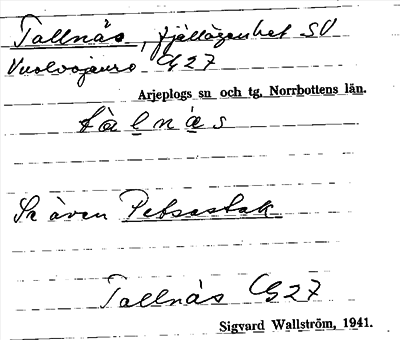 Tallnäs, fjällägenhet SV
Vuolvojaure G27
Arjeplogs sn och tg, Norrbottens län.
tàlnäs
Se även Petsastak
Tallnäs G27
Sigvard Wallström, 1941.